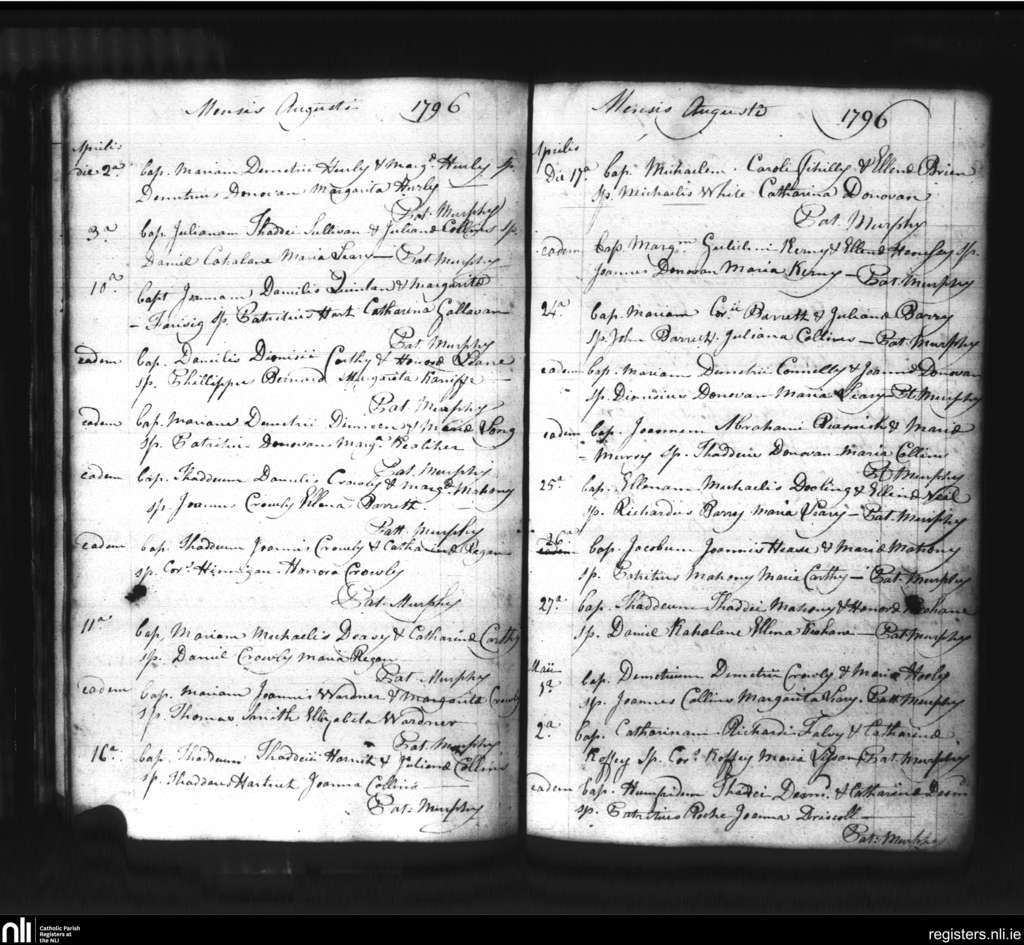 Mensis Augusti 1796
Aprilis
die 2a bap. Mariam Demetrii Hurly & Margt. Hurly sp.
Demetrius Donovan Margarita Hurly
Pat. Murphy
3a bap. Julianam Thaddei Sullivan & Juliana Collins sp.
Daniel Cahalane Maria Leary — Pat Murphy
10a bapt Joannam Danielis Quinlan & Margarita
sp. Patritius Hart Catharina Gallavan
Pat Murphy
eadem bap. Danielis Dionisii Carthy & Honora
sp. Phillippa Bernard Margarita
Pat Murphy
eadem bap. Mariam Demetrii & Maria Long
sp. Patritius Donovan Margt. Keoliher
Pat. Murphy
eadem bap. Thaddeum Danielis Crowly & Margt. Mahony
sp. Joannes Crowly Ellena Barrett
Patt. Murphy
eadem bap. Thaddeum Joannis Crowly & Catharina Regan
sp. Cors. Hennigan Honora Crowley
Pat. Murphy
11a bap. Mariam Michaelis Deasy & Catharina Carthy
sp. Daniel Crowly Maria Regan
Pat. Murphy
eadem bap. Mariam Joannis Wardner & Margarita Crowly
sp. Thomas Smith Elizabeta Wardner
Pat. Murphy
16a bap. Thaddeum Thaddeii & Juliana Collins
sp. Thaddeus Hartnet Joanna Collins
Pat: Murphy
Mensis Augusti 1796
Aprilis
Die 17a bap. Michaelem Caroli & Ellena Brien
sp. Michaelis White Catharina Donovan
Pat. Murphy
eadem bap. Margm Gulielmi Kerny & Ellena sp.
Joannes Donovan Maria Kerny — Pat. Murphy
24a bap. Mariam Corii Barrett & Juliana Barry
sp. John Barrett Juliana Collins — Pat Murphy
eadem bap. Mariam Demetrii Connelly & Joanna Donovan
sp. Dionisius Donovan Maria Leary — Pt Murphy
eadem bap. Joannem Abrahami & Maria
Murry sp. Thaddeus Donovan Maria Collins
Pt Murphy
25a bap. Ellenam Michaelis Dooling & Ellena Neal
sp. Richardus Barry Maria Leary — Pat. Murphy
26a
eadem bap. Jacobum Joannis Hease & Maria Mahony
sp. Patritius Mahony Maria Carthy — Pat. Murphy
27a bap. Thaddeum Thaddei Mahony & Honora Keohane
sp. Daniel Kahalane Ellena Keohane — Pat Murphy
Maii
1a bap. Demetrium Demetrii Crowly & Maria Hooly
sp. Joannes Collins Margarita Leary. Patt Murphy
2a bap. Catharinam Richardi Falvy & Catharina
Koffey sp. Cors. Koffey Maria Pat. Murphy
eadem bap. Humpidum Thaddei & Catharina
sp. Patritius Roche Joanna Driscoll —
Pat: Murphy
nli Catholic Parish
Registers at
the NLI
registers.nli.ie